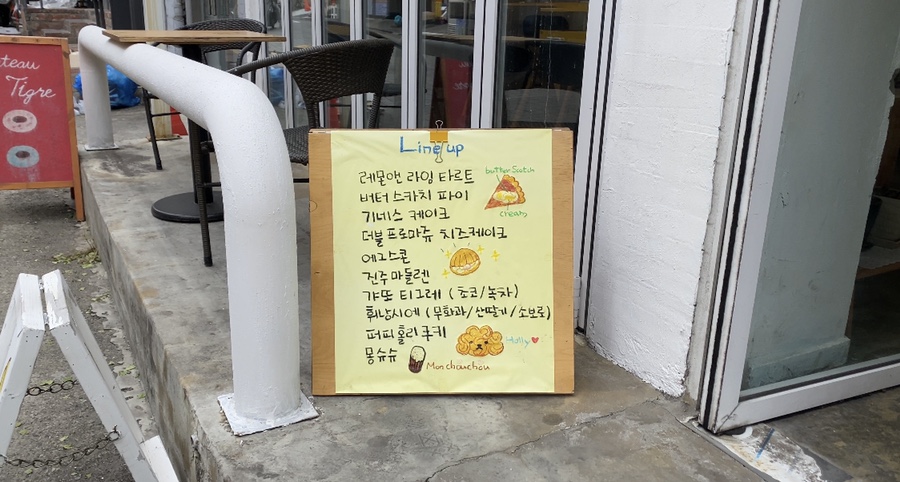 teau
Tigre
Line up
레몰앤 라임 타르트
버터 스카치 파이
butter Scotch
cream
기네스 케이크
더블 프로마쥬 치즈케이크
에그스콘
진주 마들렌
갸또 티그레 (초코/녹차)
휘낭시에 (무화과/산딸기/소보로)
퍼피 홀리 쿠키
Holly
몽슈슈
Mon chouchou